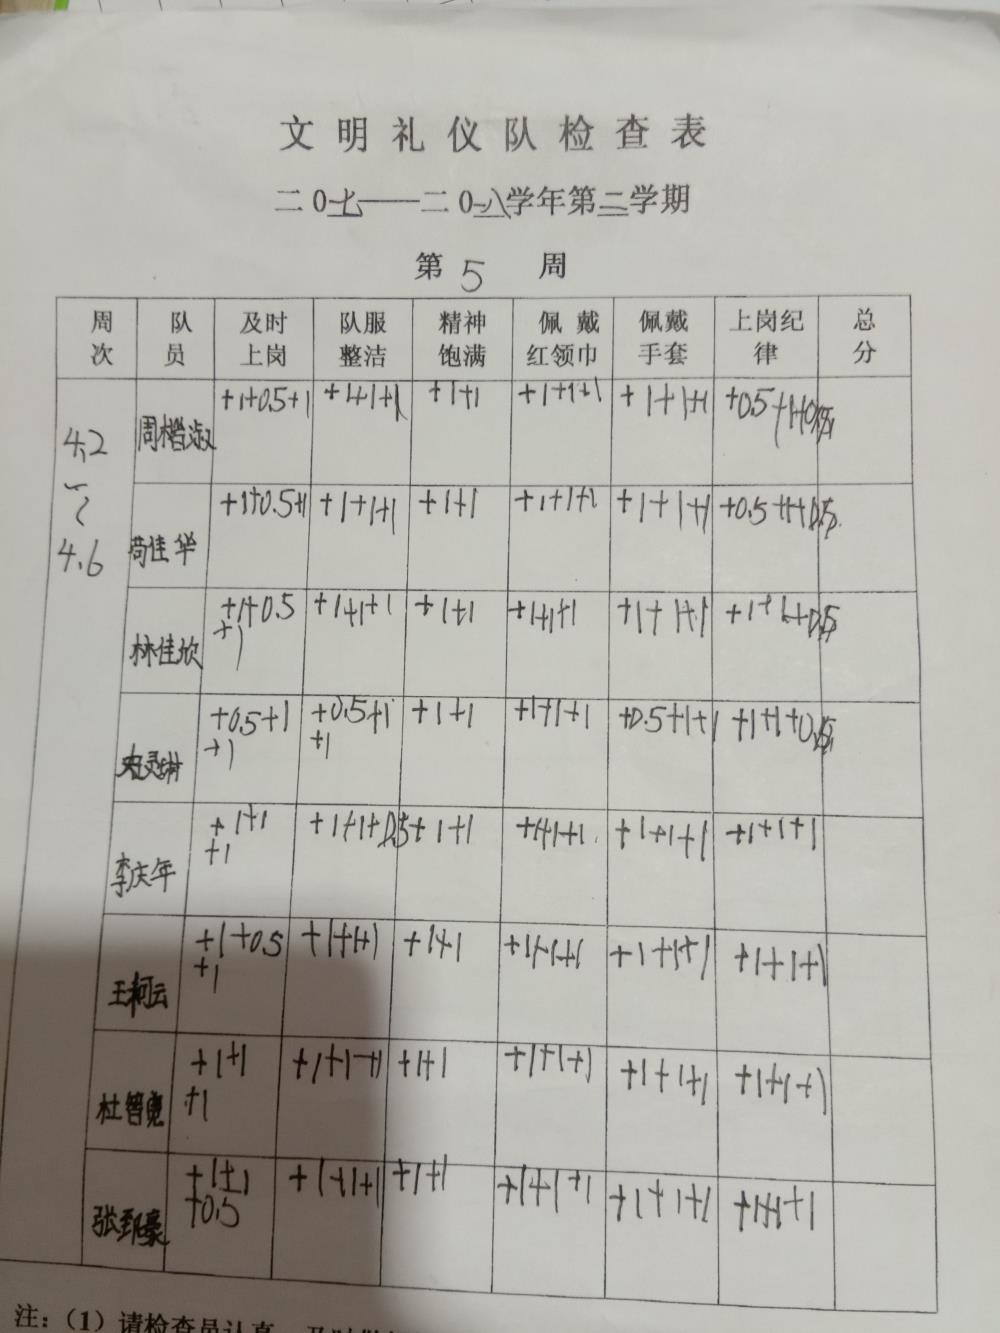 文明礼仪队检查表
二0七——二0一八学年第二学期
第5周
周次 队员 及时上岗 队服整洁 精神饱满 佩戴红领巾 佩戴手套 上岗纪律 总分
4.2～4.6
周 +1+0.5+1 +1+1+1 +1+1 +1+1+1 +1+1+1 +0.5+1+0.5
苟佳华 +1+0.5+1 +1+1+1 +1+1 +1+1+1 +1+1+1 +0.5+1+0.5
林佳欣 +1+0.5+1 +1+1+1 +1+1 +1+1+1 +1+1+1 +1+1+0.5
+0.5+1+1 +0.5+1+1 +1+1 +1+1+1 +0.5+1+1 +1+1+0.5
李庆年 +1+1+1 +1+1+0.5 +1+1 +1+1+1 +1+1+1 +1+1+1
王柯云 +1+0.5+1 +1+1+1 +1+1 +1+1+1 +1+1+1 +1+1+1
杜智 +1+1+1 +1+1+1 +1+1 +1+1+1 +1+1+1 +1+1+1
张 豪 +1+1+0.5 +1+1+1 +1+1 +1+1+1 +1+1+1 +1+1+1
注：（1）请检查员认真、及时